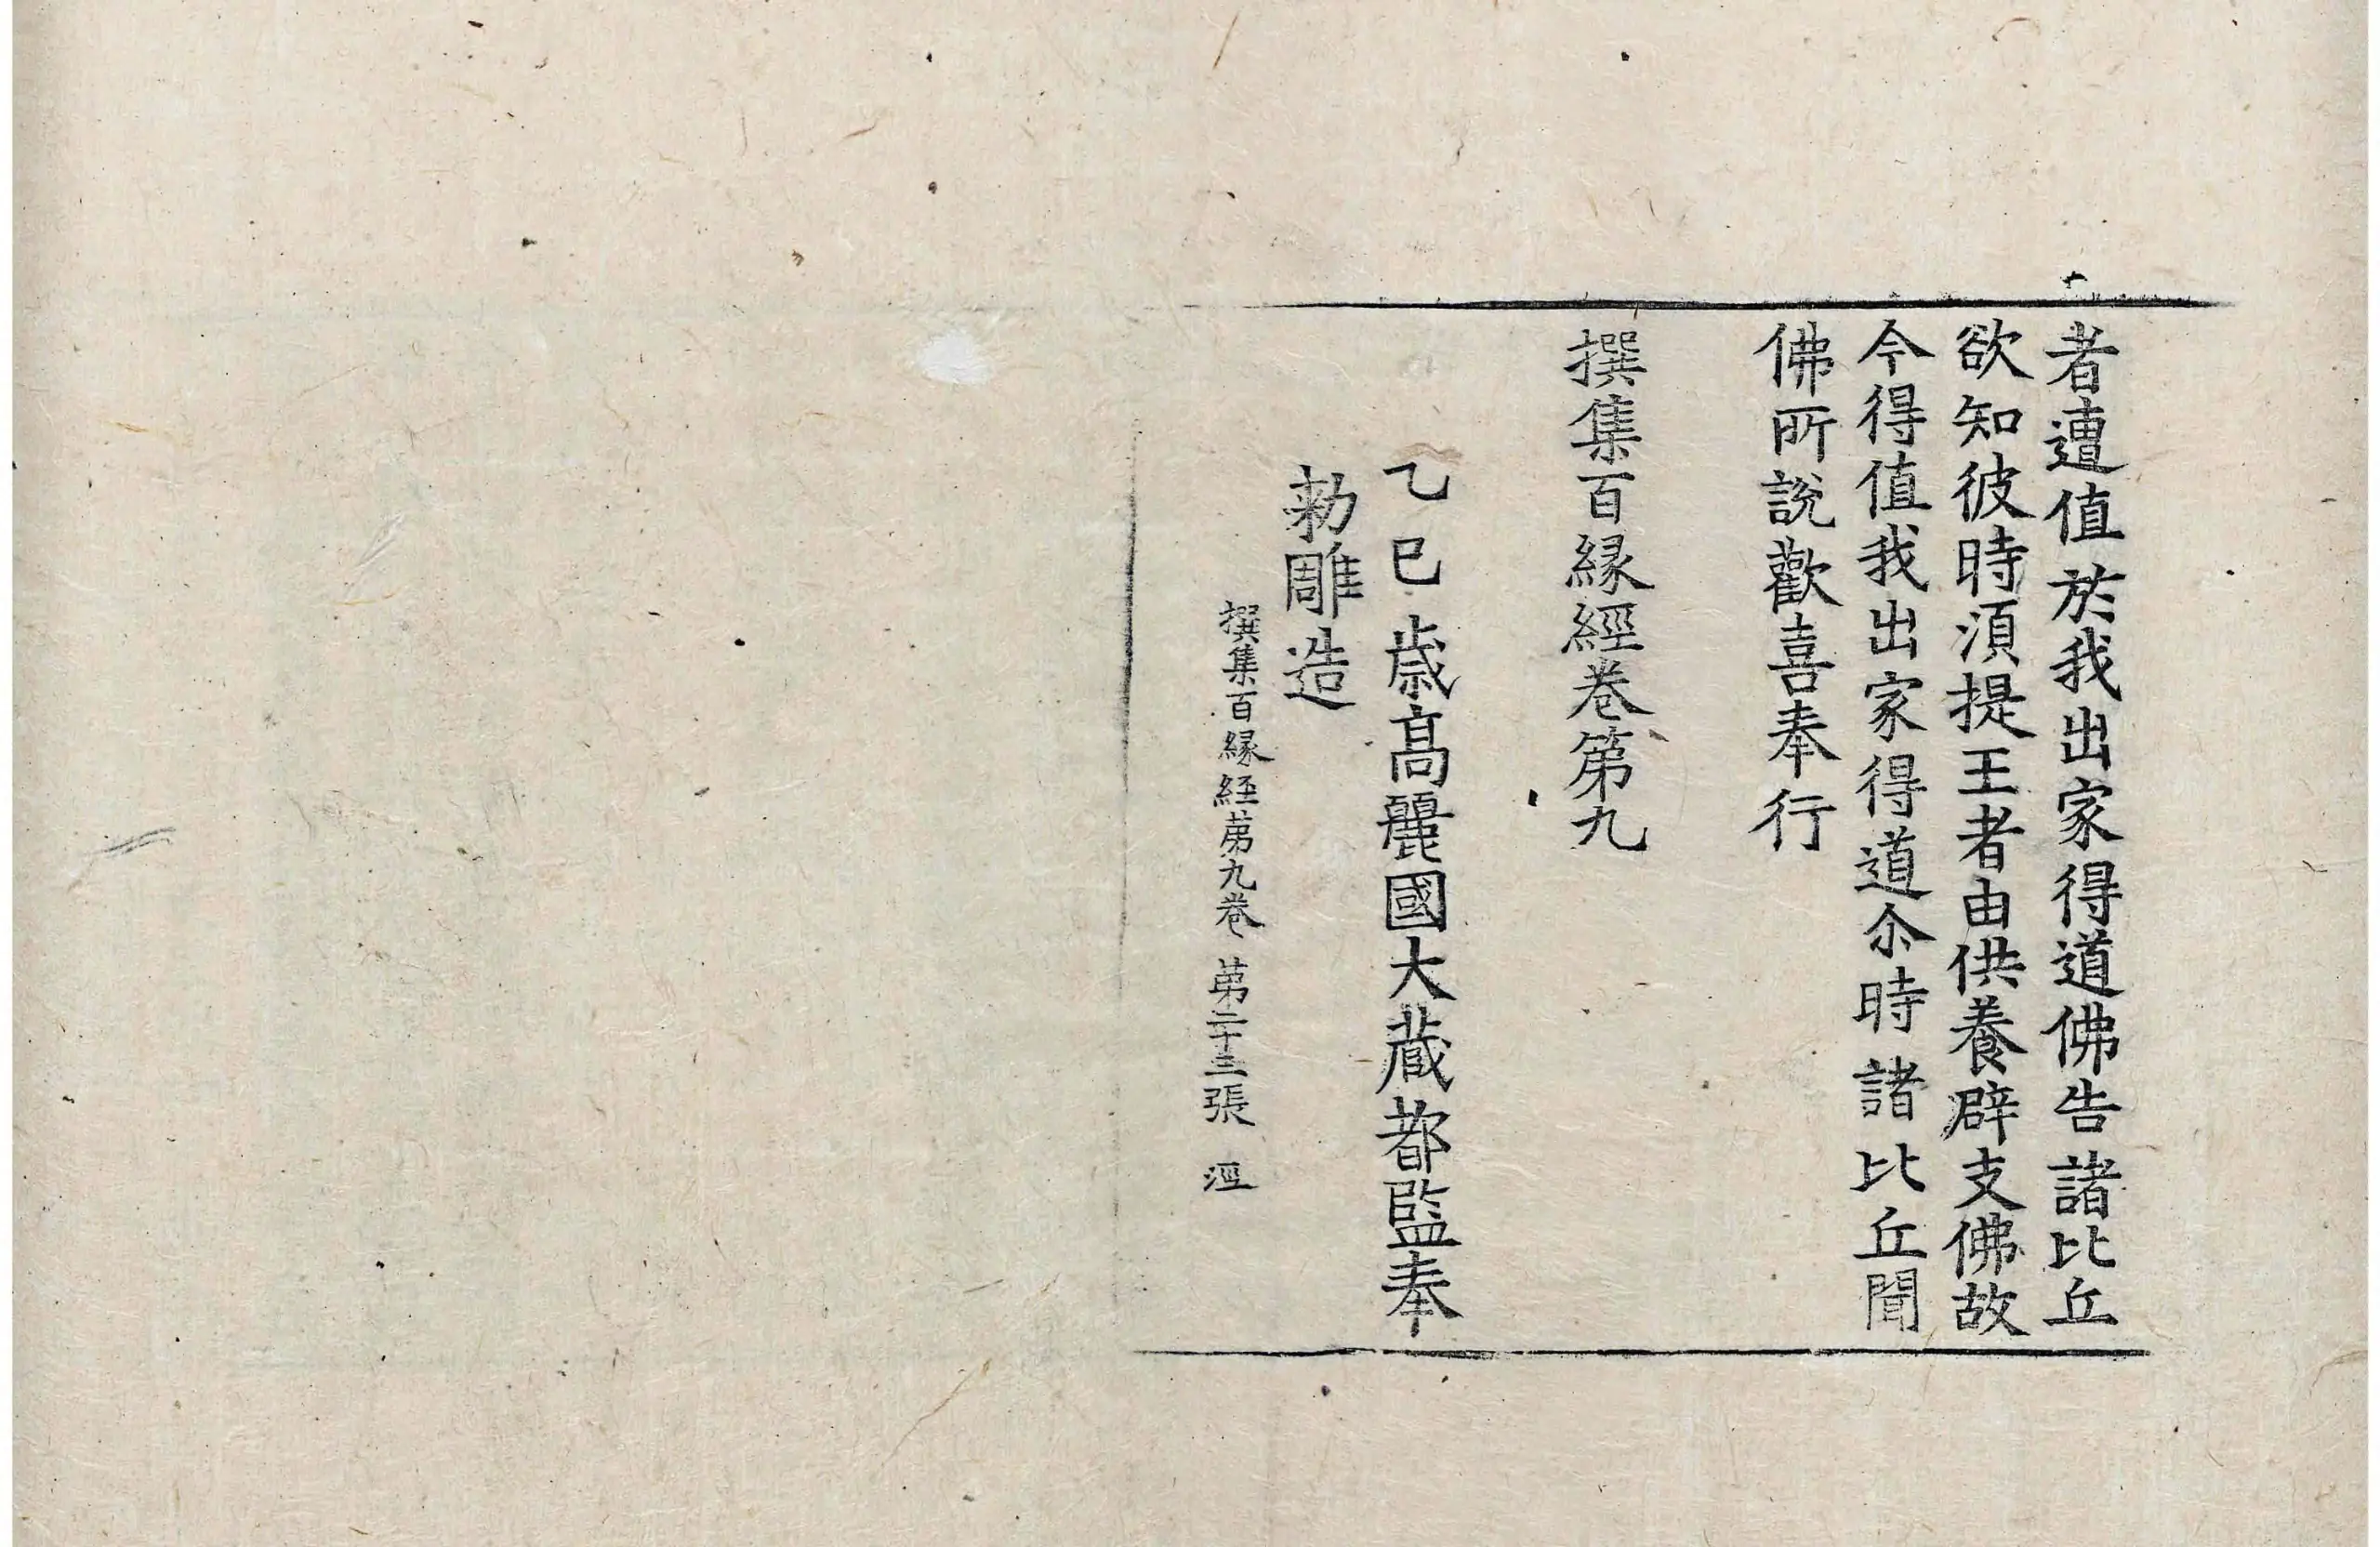 者遭值於我出家得道佛告諸比丘
欲知彼時湏提王者由供養辟支佛故
今得值我出家得道尒時諸比丘聞
佛所說歡喜奉行
撰集百縁經卷第九
乙巳歲高麗國大藏都監奉
勑雕造
撰集百縁経苐九卷 苐二十三張 涇